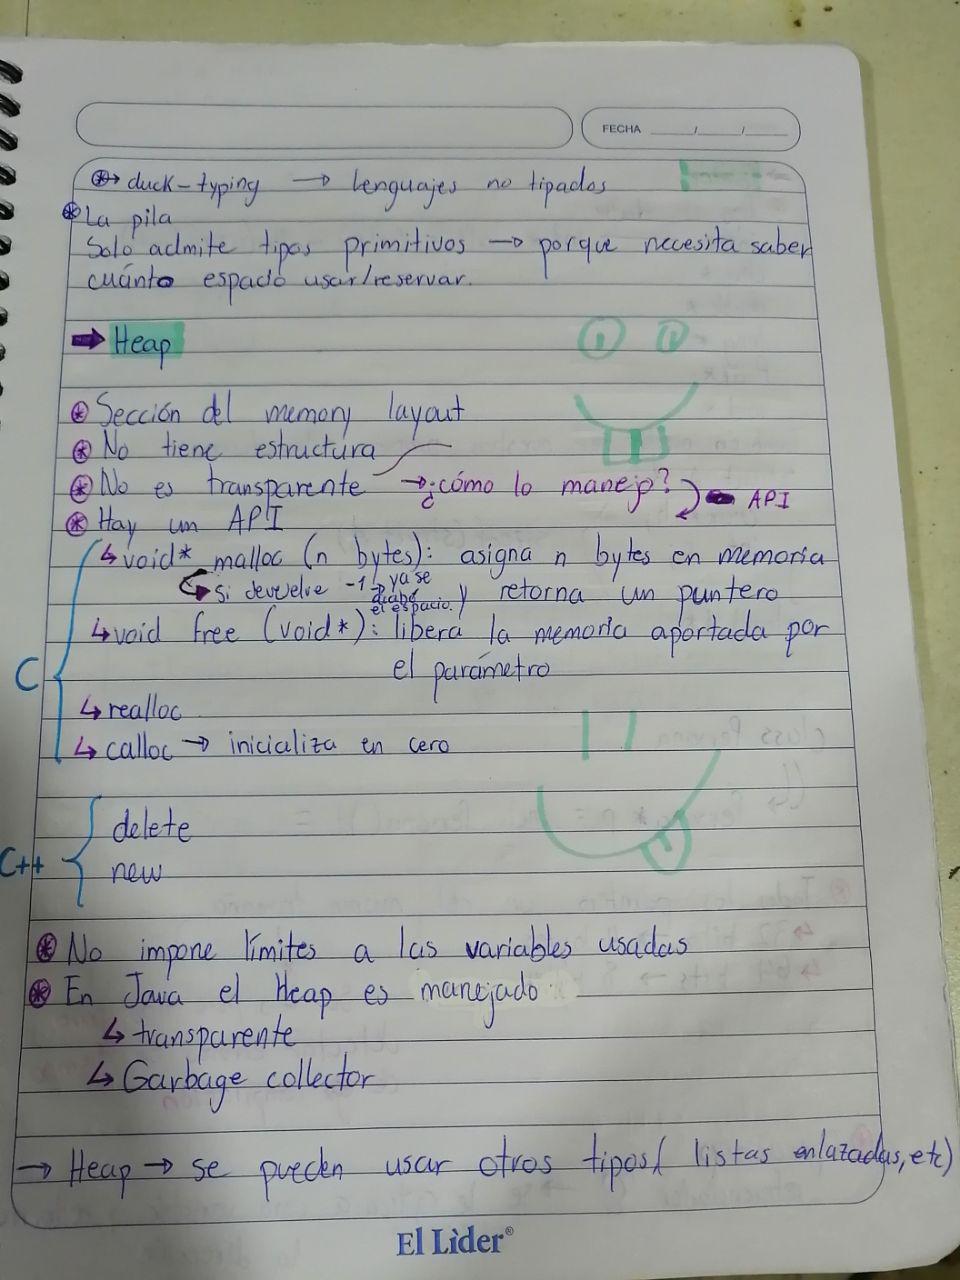 FECHA ____/____/____
⊛→ duck-typing → lenguajes no tipados
⊛ La pila
Solo admite tipos primitivos → porque necesita saber
cuánto espacio usar/reservar.
➡ Heap
⊛ Sección del memory layout
⊛ No tiene estructura
⊛ No es transparente → ¿cómo lo manejo? API
⊛ Hay un API
C
↳ void* malloc (n bytes): asigna n bytes en memoria
↳ si devuelve -1 → ya se acabó el espacio.
y retorna un puntero
↳ void free (void*): libera la memoria aportada por
el parámetro
↳ realloc
↳ calloc → inicializa en cero
C++
delete
new
⊛ No impone límites a las variables usadas
⊛ En Java el Heap es manejado
↳ transparente
↳ Garbage collector
→ Heap → se pueden usar otros tipos ( listas enlazadas, etc)
El Lider®